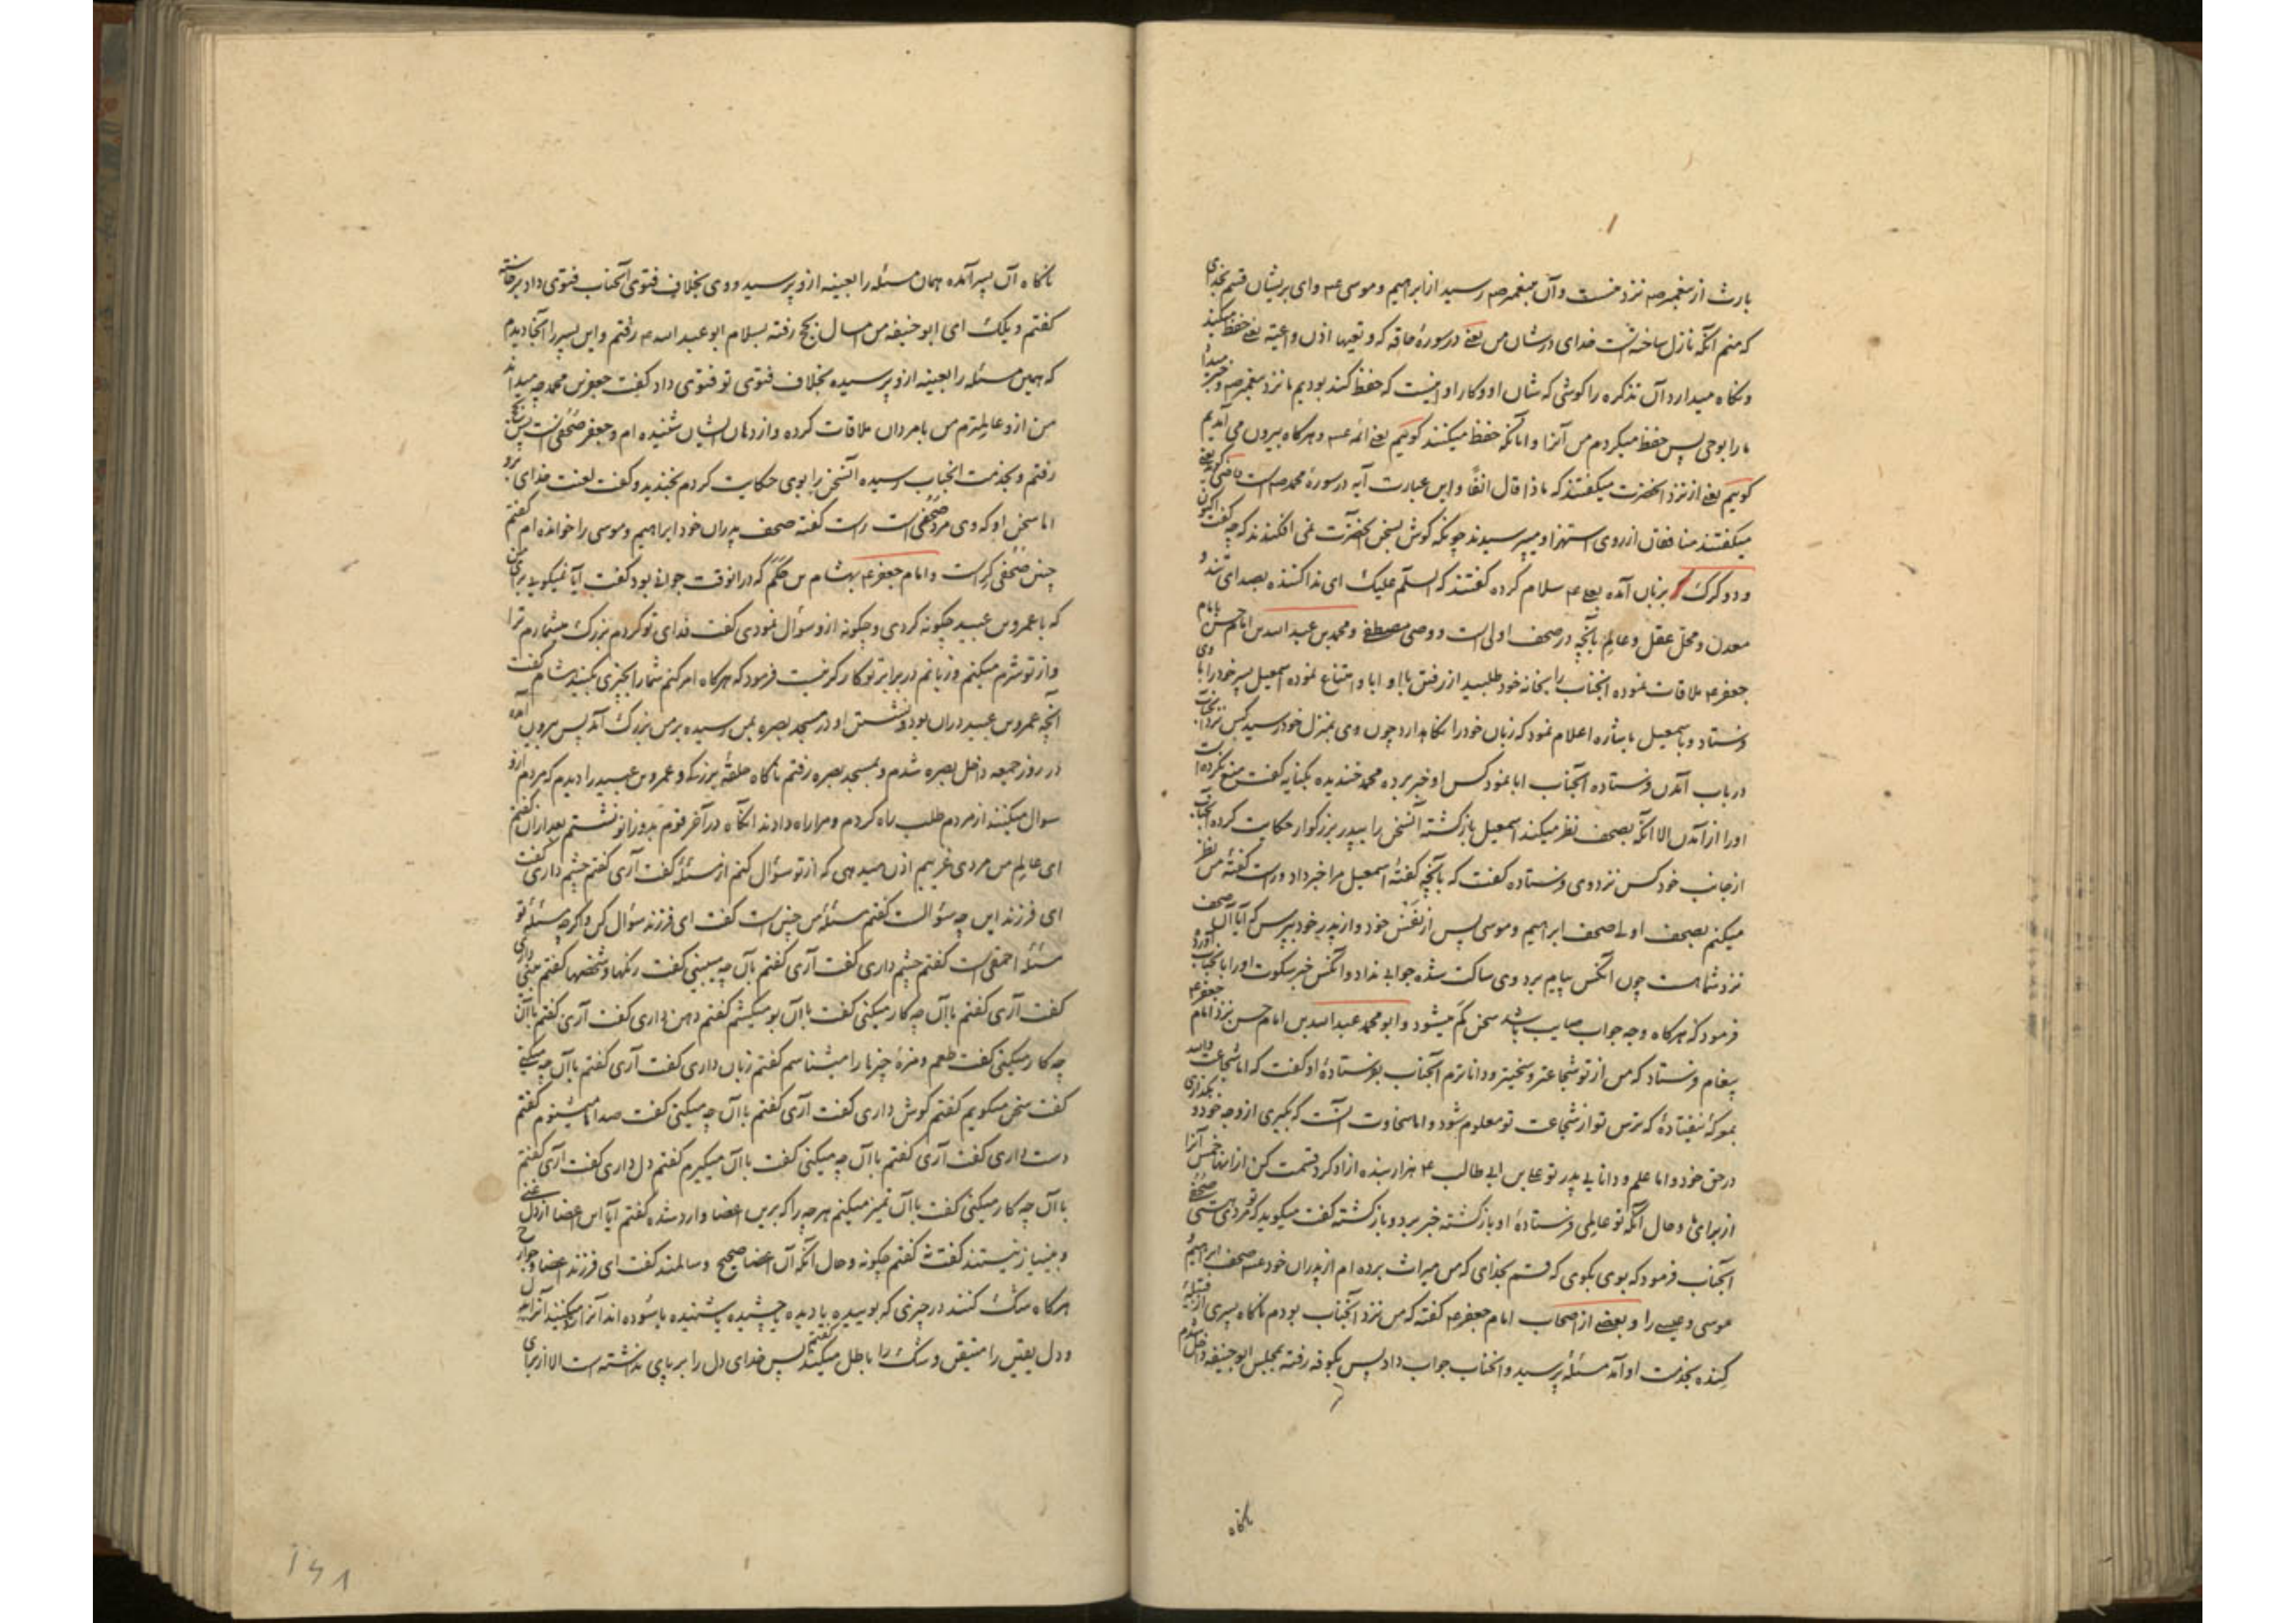 بارث از پیغمبر صه نزد منست و آن پیغمبر صه رسید از ابراهیم و موسی عه و ای بریشان قسم بخدای
که منم آنکه نازل ساخته است خدای در شان من یعنی در سورهٔ حاقه که و تعیها اذن واعیة یعنی حفظ میکند
و نگاه میدارد آن تذکره را گوشی که شان او و کار او اینست که حفظ کند بودیم ما نزد پیغمبر صه و خبر میداد
ما را بوحی پس حفظ میکردم من آنرا و آنانکه حفظ میکنند گوئیم یعنی ائمه عه و هرگاه بیرون می آمدیم
گوئیم یعنی از نزد آنحضرت میگفتند که ماذا قال انفاً و این عبارت آیه در سورهٔ محمد صه است
میگفتند منافقان از روی استهزا و میپرسیدند چونکه گوش بسخن آنحضرت نمی افکندند که چه گفت اکنون
و دو گرگ بزبان آمده بعلی عه سلام کرده گفتند که السلام علیک ای ندا کننده بصدای تند و
معدن و محل عقل و عالم بآنچه در صحف اولی است و وصی مصطفی و محمد بن عبد الله بن امام حسن بامام
جعفر عه ملاقات نموده آنجناب را بخانه خود طلبید از رفتن باو ابا و امتناع نموده اسمعیل پسر خود را با وی
فرستاد و باسمعیل باشاره اعلام نمود که زبان خود را نگاهدارد چون وی بمنزل خود رسید کس نزد آنجناب
در باب آمدن فرستاده آنجناب ابا نمود کس او خبر برده محمد خندیده بکنایه گفت منع نکرده است
او را از آمدن الا آنکه بصحف نظر میکند اسمعیل بازگشته آنسخن را بپدر بزرگوار حکایت کرده آنجناب
از جانب خود کس نزد وی فرستاده گفت که بآنچه گفتهٔ اسمعیل مرا خبر داد و راست گفتهٔ من نظر
میکنم بصحف اولی صحف ابراهیم و موسی پس از نفس خود و از پدر خود بپرس که آیا آن صحف
نزد شما هست چون آنکس پیام برد وی ساکت شده جوابی نداد و آنکس خبر سکوت او را بآنجناب آورد
فرمود که هرگاه وجه جواب صایب باشد سخن کم میشود و ابو محمد عبد الله بن امام حسن نزد امام جعفر عه
پیغام فرستاد که من از تو شجاعتر و سخیتر و داناترم آنجناب بفرستادهٔ او گفت که اما شجاعت والله
بمعرکهٔ نیفتادهٔ که ترس تو از شجاعت تو معلوم شود و اما سخاوت آنست که بگیری از وجه خود و بگذاری
در حق خود و اما علم و دانایی پدر تو علی بن ابی طالب عه هزار بنده آزاد کرد قسمت کن از اینها خمس آنرا
از برای ما و حال آنکه تو عالمی فرستادهٔ او بازگشته خبر برد و بازگشته گفت میگوید که تو مردی هستی صحفی
آنجناب فرمود که بوی بگوی که قسم بخدای که من میراث برده ام از پدران خود عه صحف ابراهیم
موسی و عیسی را و بعضی از اصحاب امام جعفر عه گفته که من نزد آنجناب بودم ناگاه پسری از قبیلهٔ
کنده بخدمت او آمد مسئلهٔ پرسید و آنجناب جواب داد پس بکوفه رفته بمجلس ابو حنیفه داخل شدم
ناگاه
ناگاه آن پسر آمده همان مسئله را بعینه ازو پرسید و وی بخلاف فتوی آنجناب فتوی داد برخاسته
گفتم ویلک ای ابو حنیفه من امسال بحج رفته بسلام ابو عبد الله عه رفتم و این پسر را آنجا دیدم
که همین مسئله را بعینه ازو پرسیده بخلاف فتوی تو فتوی داد گفت جعفر بن محمد چه میداند
من ازو عالمترم من بامردان ملاقات کرده و از دهان ایشان شنیده ام و جعفر صحفی است پس
رفتم و بخدمت آنجناب رسیده آنسخن را بوی حکایت کردم بخندید و گفت لعنت خدای برو
اما سخن او که وی مرد صحفی است راست گفته صحف پدران خود ابراهیم و موسی را خوانده ام گفتم
چنین صحفی کراست و امام جعفر عه بهشام بن حکم که در انوقت جوانی بود گفت آیا نمیگویی برای من
که با عمرو بن عبید چگونه کردی و چگونه ازو سؤال نمودی گفت فدای تو گردم بزرگ میشمارم ترا
و از تو شرم میکنم و زبانم در برابر تو کارگر نیست فرمود که هرگاه امر کنم شما را بچیزی بکنید هشام گفت
آنچه عمرو بن عبید دران بود و نشستن او در مسجد بصره بمن رسیده بر من بزرگ آمد پس بیرون آمده
در روز جمعه داخل بصره شدم و بمسجد بصره رفتم ناگاه حلقهٔ بزرگ و عمرو بن عبید را دیدم که مردم ازو
سوال میکنند از مردم طلب راه کردم و مرا راه دادند آنگاه در آخر قوم بدو زانو نشستم بعد ازان گفتم
ای عالم من مردی غریبم اذن میدهی که از تو سؤال کنم از مسئلهٔ گفت آری گفتم چشم داری گفت
ای فرزند این چه سؤالست گفتم مسئلهٔ من چنین است گفت ای فرزند سؤال کن و اگرچه مسئلهٔ تو
مسئلهٔ احمقی است گفتم چشم داری گفت آری گفتم بآن چه میبینی گفت رنگها و شخصها گفتم بینی داری
گفت آری گفتم با آن چه کار میکنی گفت با آن بو میکشم گفتم دهن داری گفت آری گفتم با آن
چه کار میکنی گفت طعم و مزهٔ چیزها را میشناسم گفتم زبان داری گفت آری گفتم با آن چه میکنی
گفت سخن میگویم گفتم گوش داری گفت آری گفتم با آن چه میکنی گفت صداها میشنوم گفتم
دست داری گفت آری گفتم با آن چه میکنی گفت با آن میگیرم گفتم دل داری گفت آری گفتم
با آن چه کار میکنی گفت با آن تمیز میکنم هرچه را که برین اعضا وارد شده گفتم آیا این اعضا از دل غنی
و بینیاز نیستند گفت نه گفتم چگونه و حال آنکه آن اعضا صحیح و سالمند گفت ای فرزند اعضا و جوارح
هرگاه شک کنند در چیزی که بوییده یا دیده یا چشیده یا شنیده یا بسوده اند آنرا رد میکنند آنرا بدل
و دل یقین را متیقن و شک را باطل میکند گفتم پس خدای دل را بر پای نداشته است الا از برای
۱۶۸